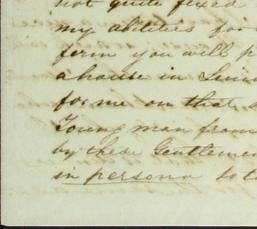 not quite fixed
my abilities for
form you will p
a house in
for me on that
Young man from
by these Gentleme
in persona to t